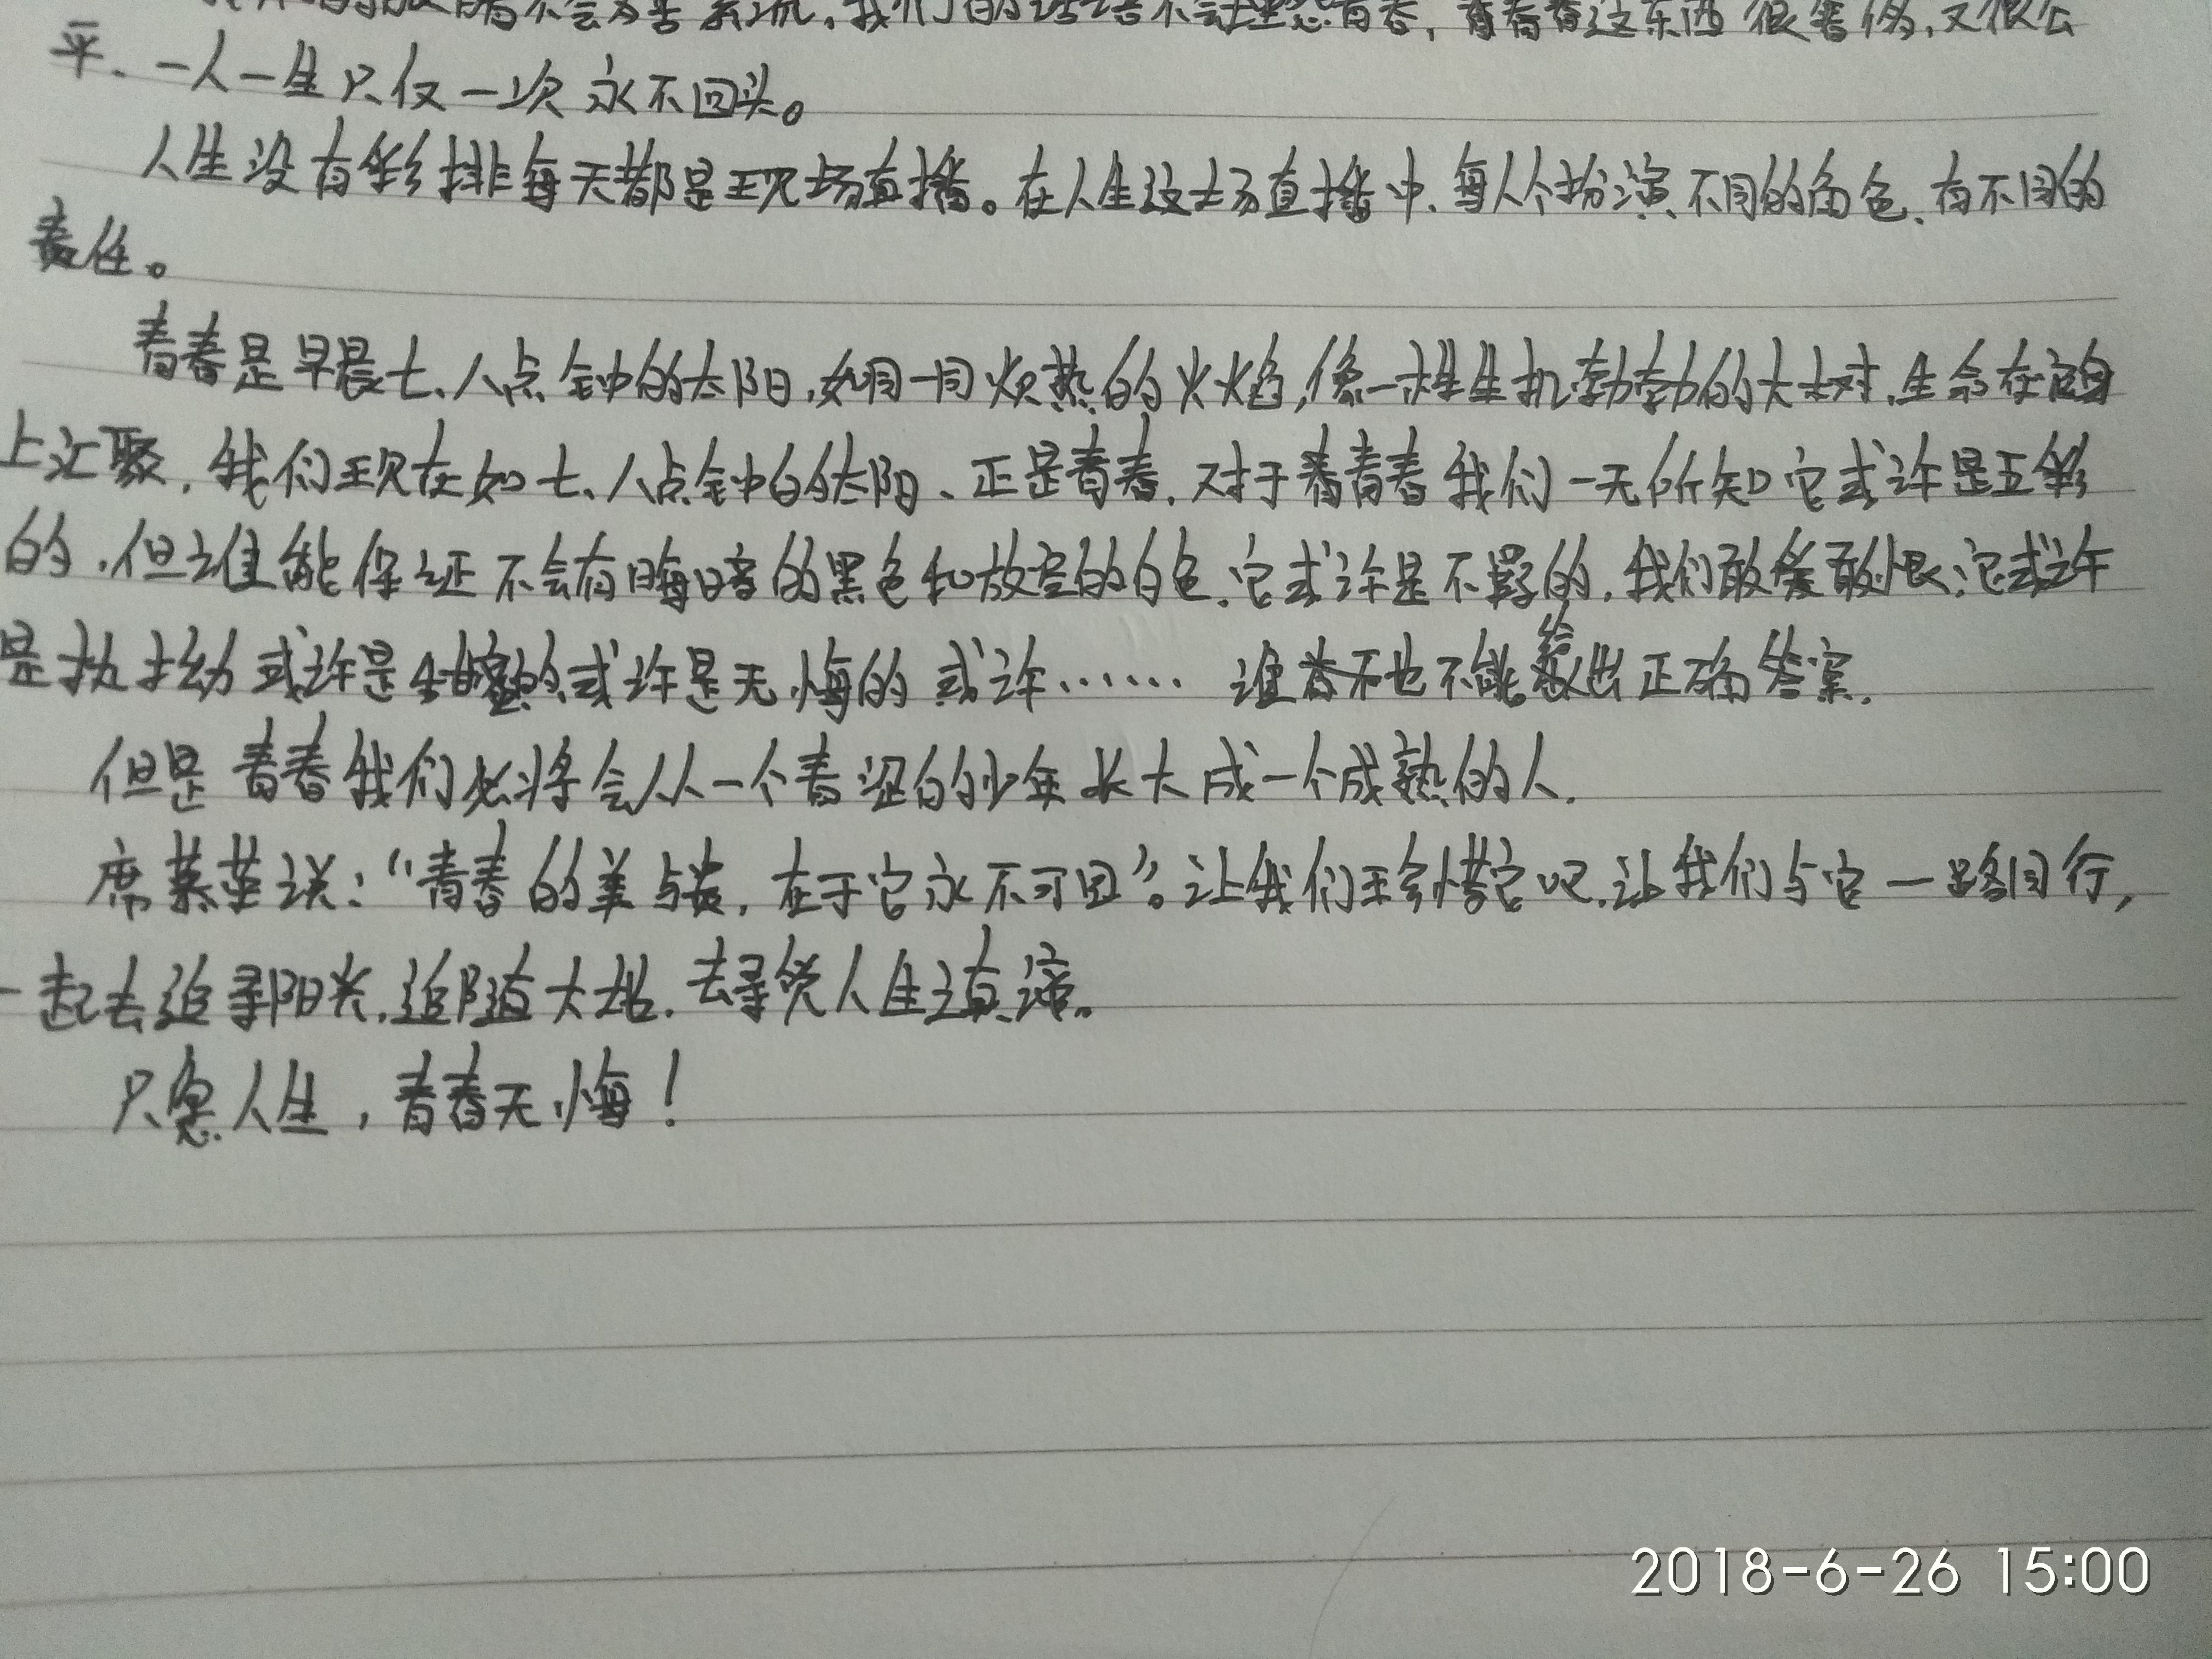 不会为苦 我们的话语不会 青春，青春这东西很奢侈，又很公
平、一人一生只仅一次永不回头。
人生没有彩排每天都是现场直播。在人生这场直播中、每人个扮演不同的角色、有不同的
责任。
青春是早晨七、八点钟的太阳，如同一同炽热的火焰，像一株生机勃勃的大树，生命在它身
上汇聚，我们现在如七、八点钟的太阳、正是青春，对于青春我们一无所知它或许是五彩
的，但谁能保证不会有晦暗的黑色和放空的白色，它或许是不羁的，我们敢爱敢恨；它或许
是执拗或许是 的、或许是无悔的或许…… 谁 也不能给出正确答案.
但是青春我们必将会从一个青涩的少年长大成一个成熟的人.
席慕蓉说：“青春的美与 ，在于它永不可回”。让我们珍惜它吧，让我们与它一路同行，
一起去追寻阳光，追随大地，去寻觅人生真谛。
只愿人生，青春无悔！
2018-6-26 15:00